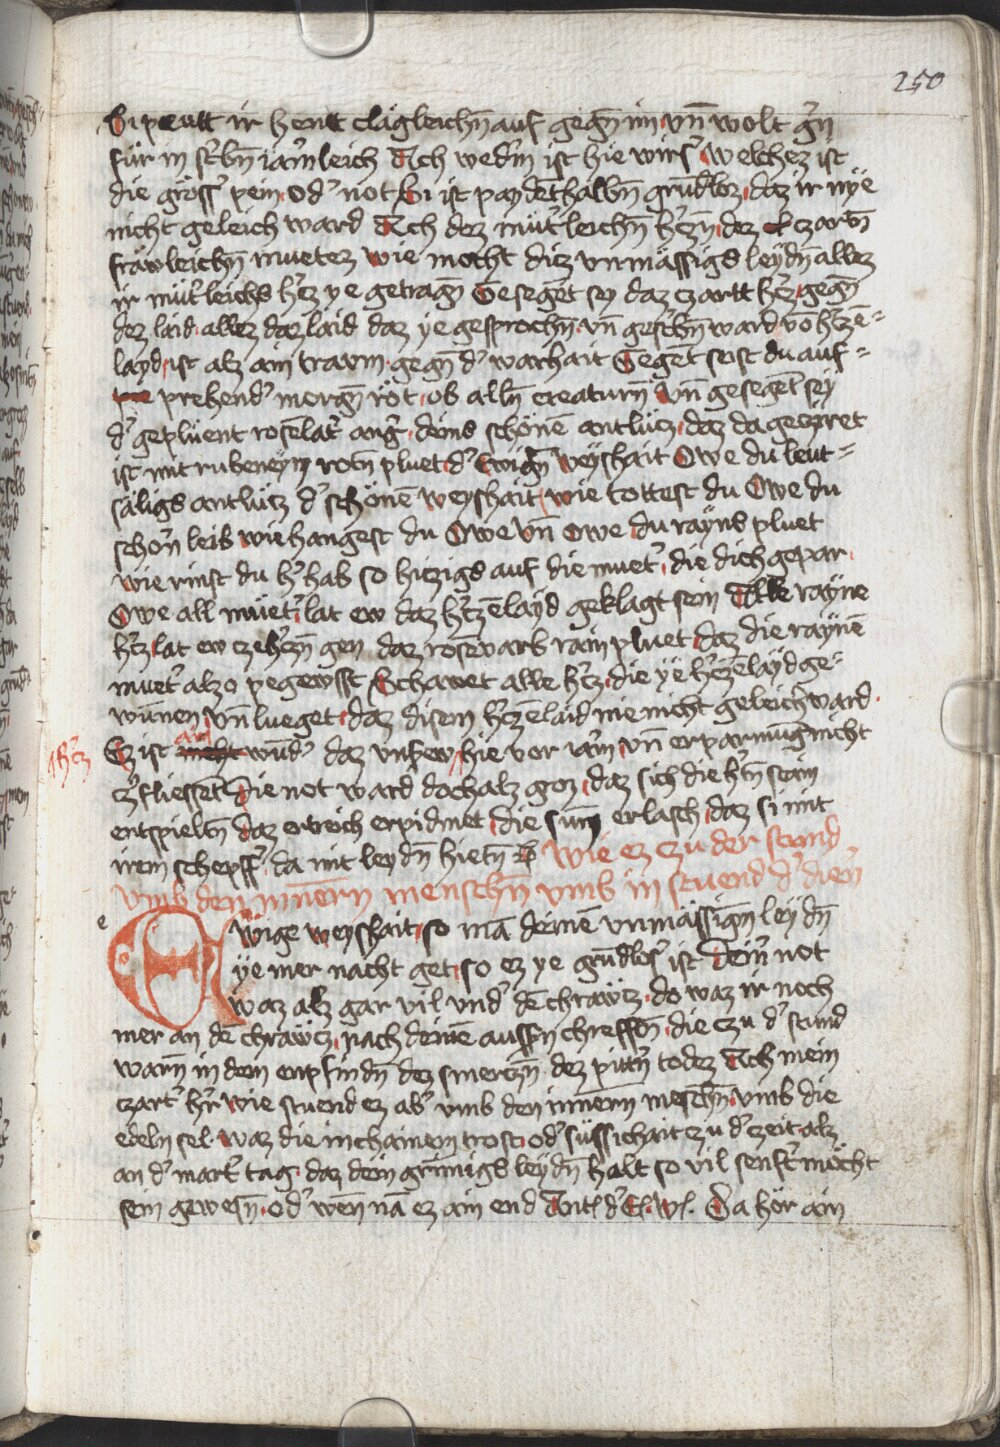 250
Si peutt ir hentt clägleichn̄ auf gegn̄ im vn̄ wolt g'n
für in st'bn̄ iam'leich Ach wed'm ist hie wirs' Welchez ist
die gröss' pein od' not Ez ist paydēthalbn̄ grūdloz daz ir nye
nicht geleich ward Ach dez müt'leichn̄ h'czn̄ dez czartn̄
fräwleichn̄ muetez wie mocht dicz vnmässigs leydn̄ allez
ir müt'leichs h'cz ye getragn̄ Gesegēt sey daz czartt h'cz gegn̄
dez laid allez daz laid daz ye gesprochn̄ vn̄ gest'bn̄ ward vō h'czē=
layd ist alz ain traum gegn̄ d' warhait Geget seist du auf=
prehend' morgn̄ röt ob alln̄ creaturn̄ Vn̄ gesegēt sey
d' geplüent rosēlat' ang' deins schönē antlücz daz da geczíret
ist mit rubeneym rotn̄ pluet d' Ewign̄ weyshait Owe du leut=
säligs antlücz d' schönē weyshait wie tottest du Owe du
schön leib wie hangest du Owe Vn̄ owe du rayns pluet
wie rinst du h' hab so hiczigs auf die muet' die dich gepar
Owe all müet' lat ew daz h'czēlayd geklagt sein Alle rayne
h'cz lat ew cze h'czn̄ gen daz rosēvarb rain pluet daz die raynē
muet' alzo pegewsst Schawet alle h'cz die ye h'czēlayd ge=
wūnen vn̄ lueget daz disem h'czēlaid nie nicht geleich ward
Ez ist ain wūd' daz vnsew hie vor iam' vn̄ erparmūg nicht
h'cz
cz'fliessēt Die not ward doch alz groz daz sich die h'tn̄ stain
entspieltn̄ daz ertreich erpidmet die sunn erlasch daz si mit
irem schepff' da mit leydn̄ hietn̄ Wie ez czu der stund
vmb den innern menschn̄ vmb in stuend d' dien'
e
EWige weyshait so mā deinē vnmässign̄ leydn̄
ye mer nacht get so ez ye grūdlos' ist Dein' not
waz alz gar vil vnd' dē chräwcz do waz ir noch
mer an dē chräwcz nach deinē aussn̄ chrefftn̄ die czu d' stund
warn̄ in dem enpfindn̄ dez smerczn̄ dez pittn̄ todez Ach mein
czart' h'r wie stuend ez ab' vmb den innern̄ meschn̄ vmb die
edeln sel waz die in chainem trost od' süssichait czu d' zeit alz
an d' mart' tag daz dein grimigs leydn̄ halt so vil senft' möcht
sein gewesn̄ od' wen̄ nā ez ain end Antt d' E. W. Da hör ain